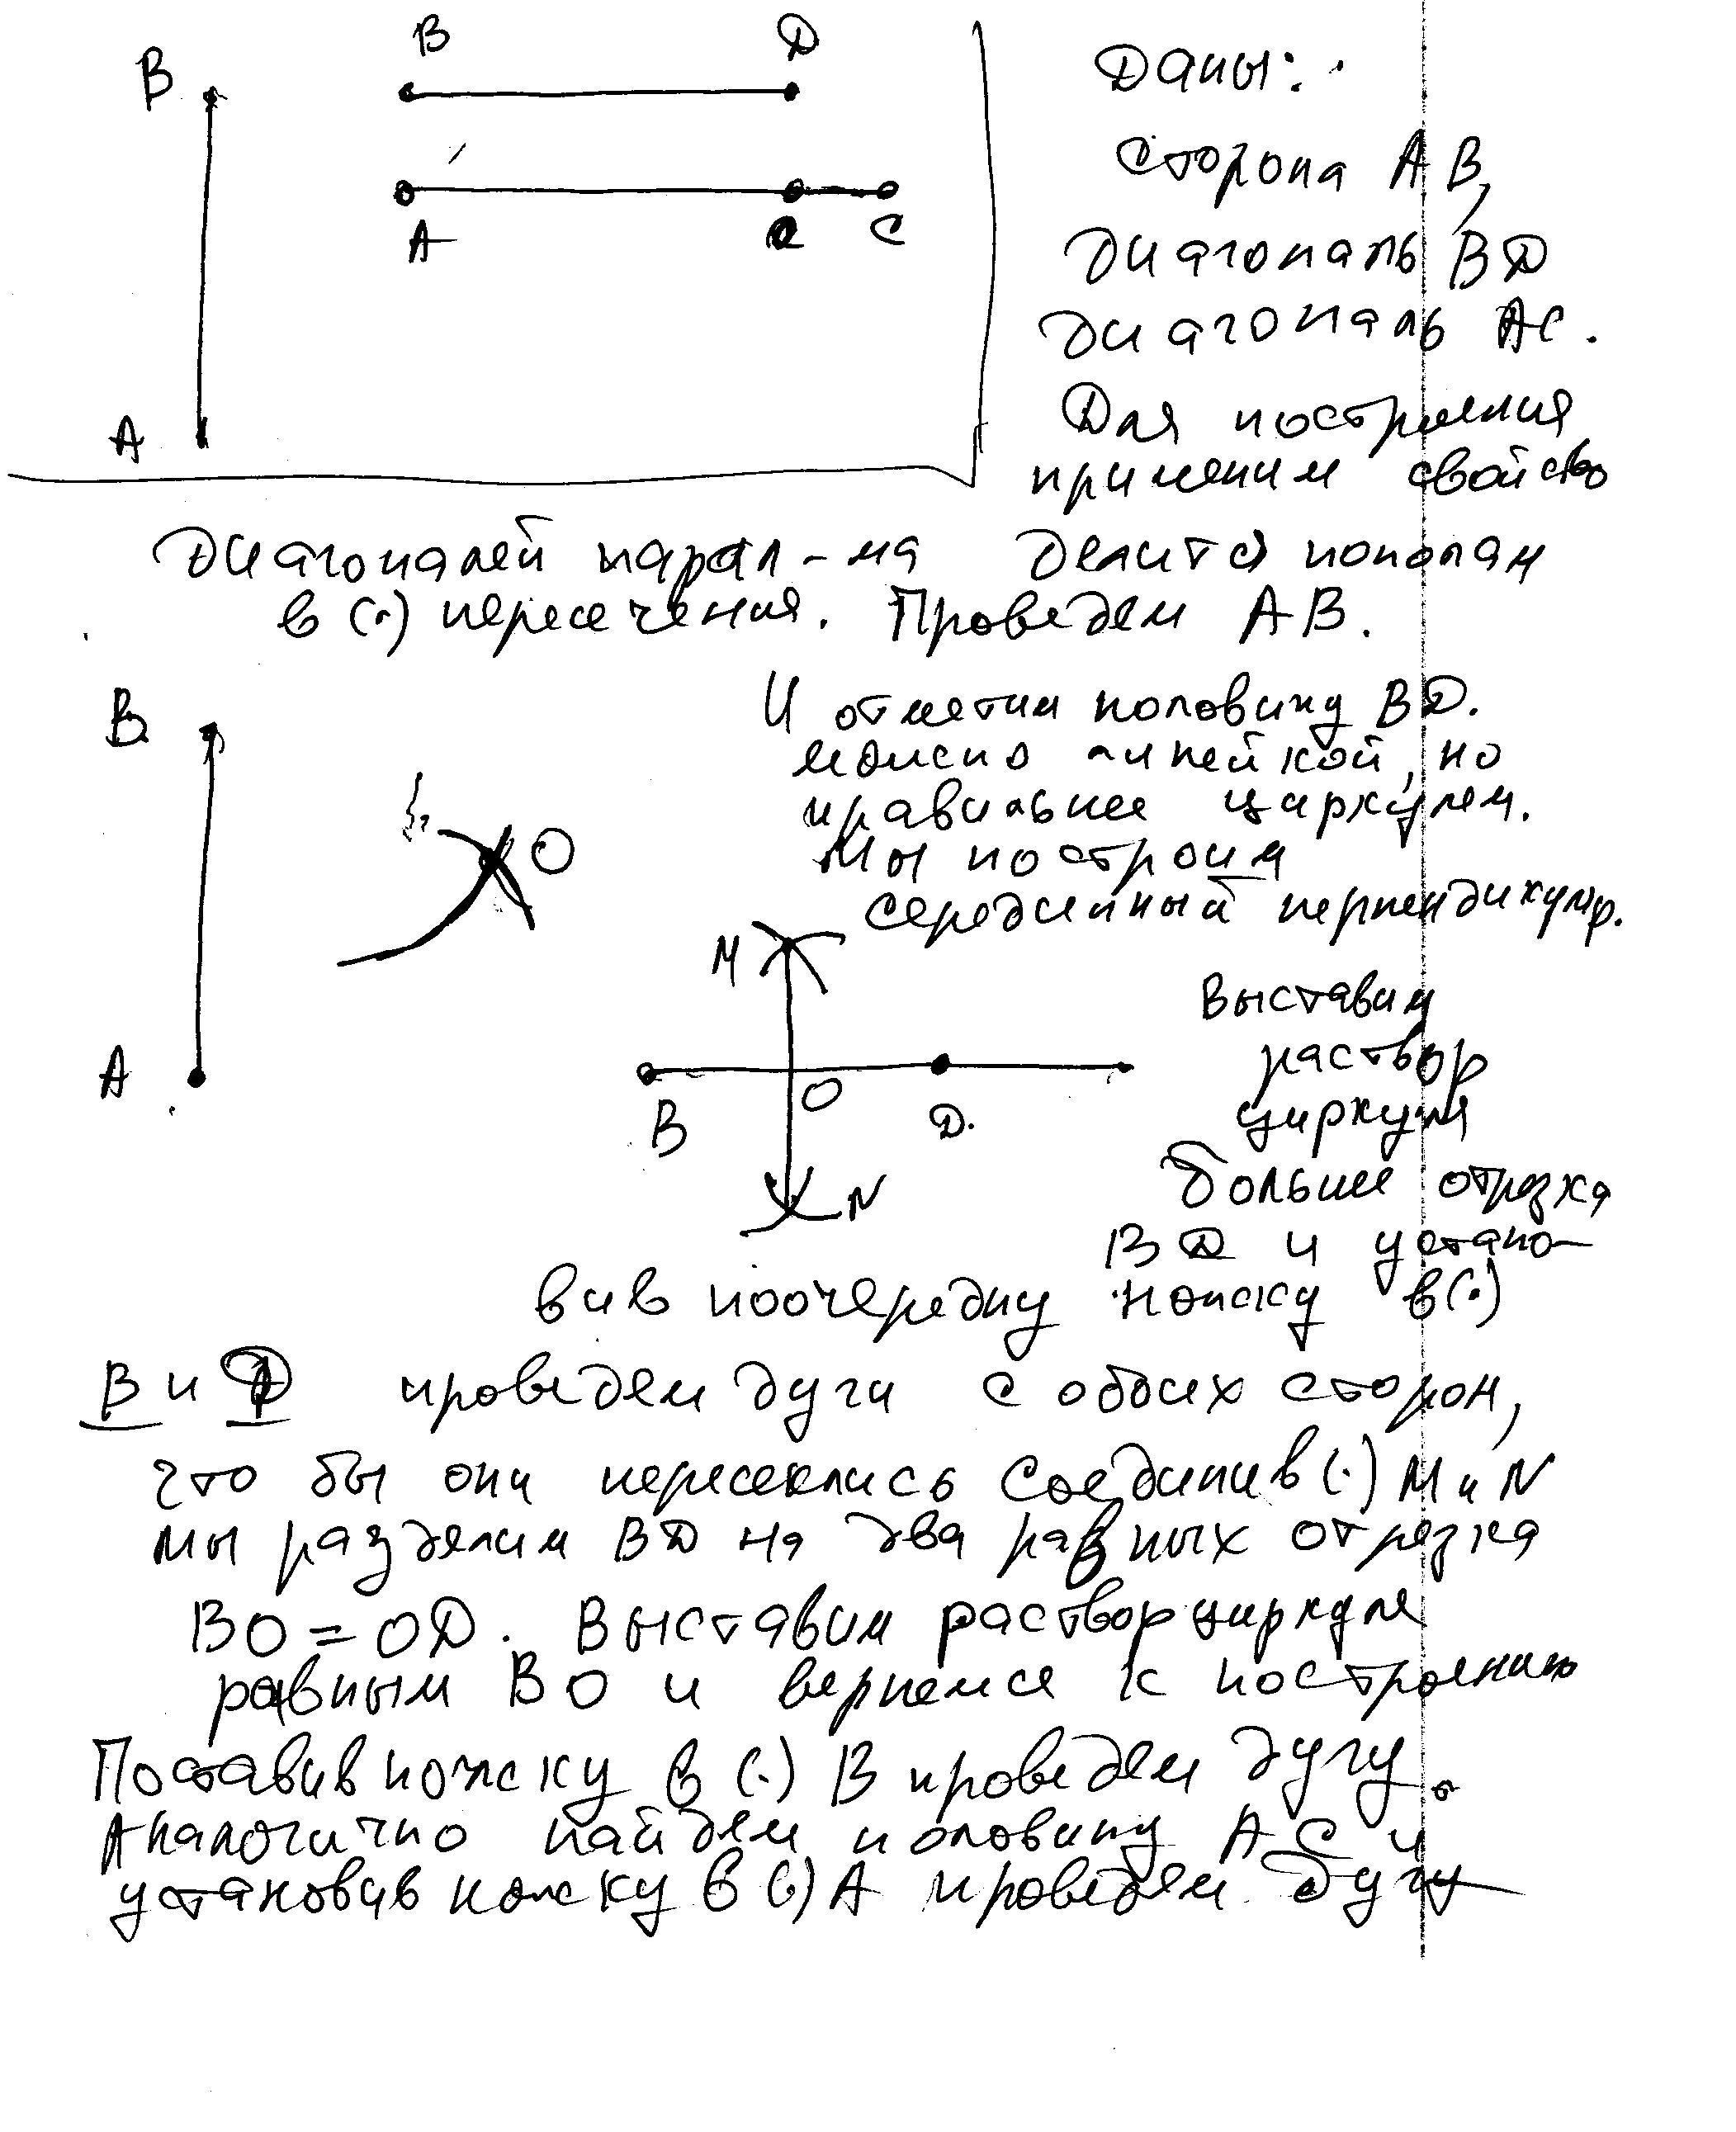 В
В Д
А С
А
Даны:
сторона АВ,
диагональ ВД
диагональ АС.
Для построения
применим свойство
диагоналей парал-ма делится пополам
в (·) пересечения. Проведем АВ.
В
О
А
И отметим половину ВД.
можно линейкой, но
правильнее циркулем.
Мы построим
серединный перпендикуляр.
М
В О Д.
N
Выставим
раствор
циркуля
больше отрезка
ВД и устано-
вив поочередну ножку в (·)
В и Д проведем дуги с обоих сторон,
что бы они пересеклись Соединив (·) М и N
мы разделим ВД на два равных отрезка
ВО = ОД. Выставим раствор циркуля
равным ВО и вернемся к построению
Поставив ножку в (·) В проведем дугу.
Аналогично найдем половину АС и
установив ножку в (·) А проведем дугу